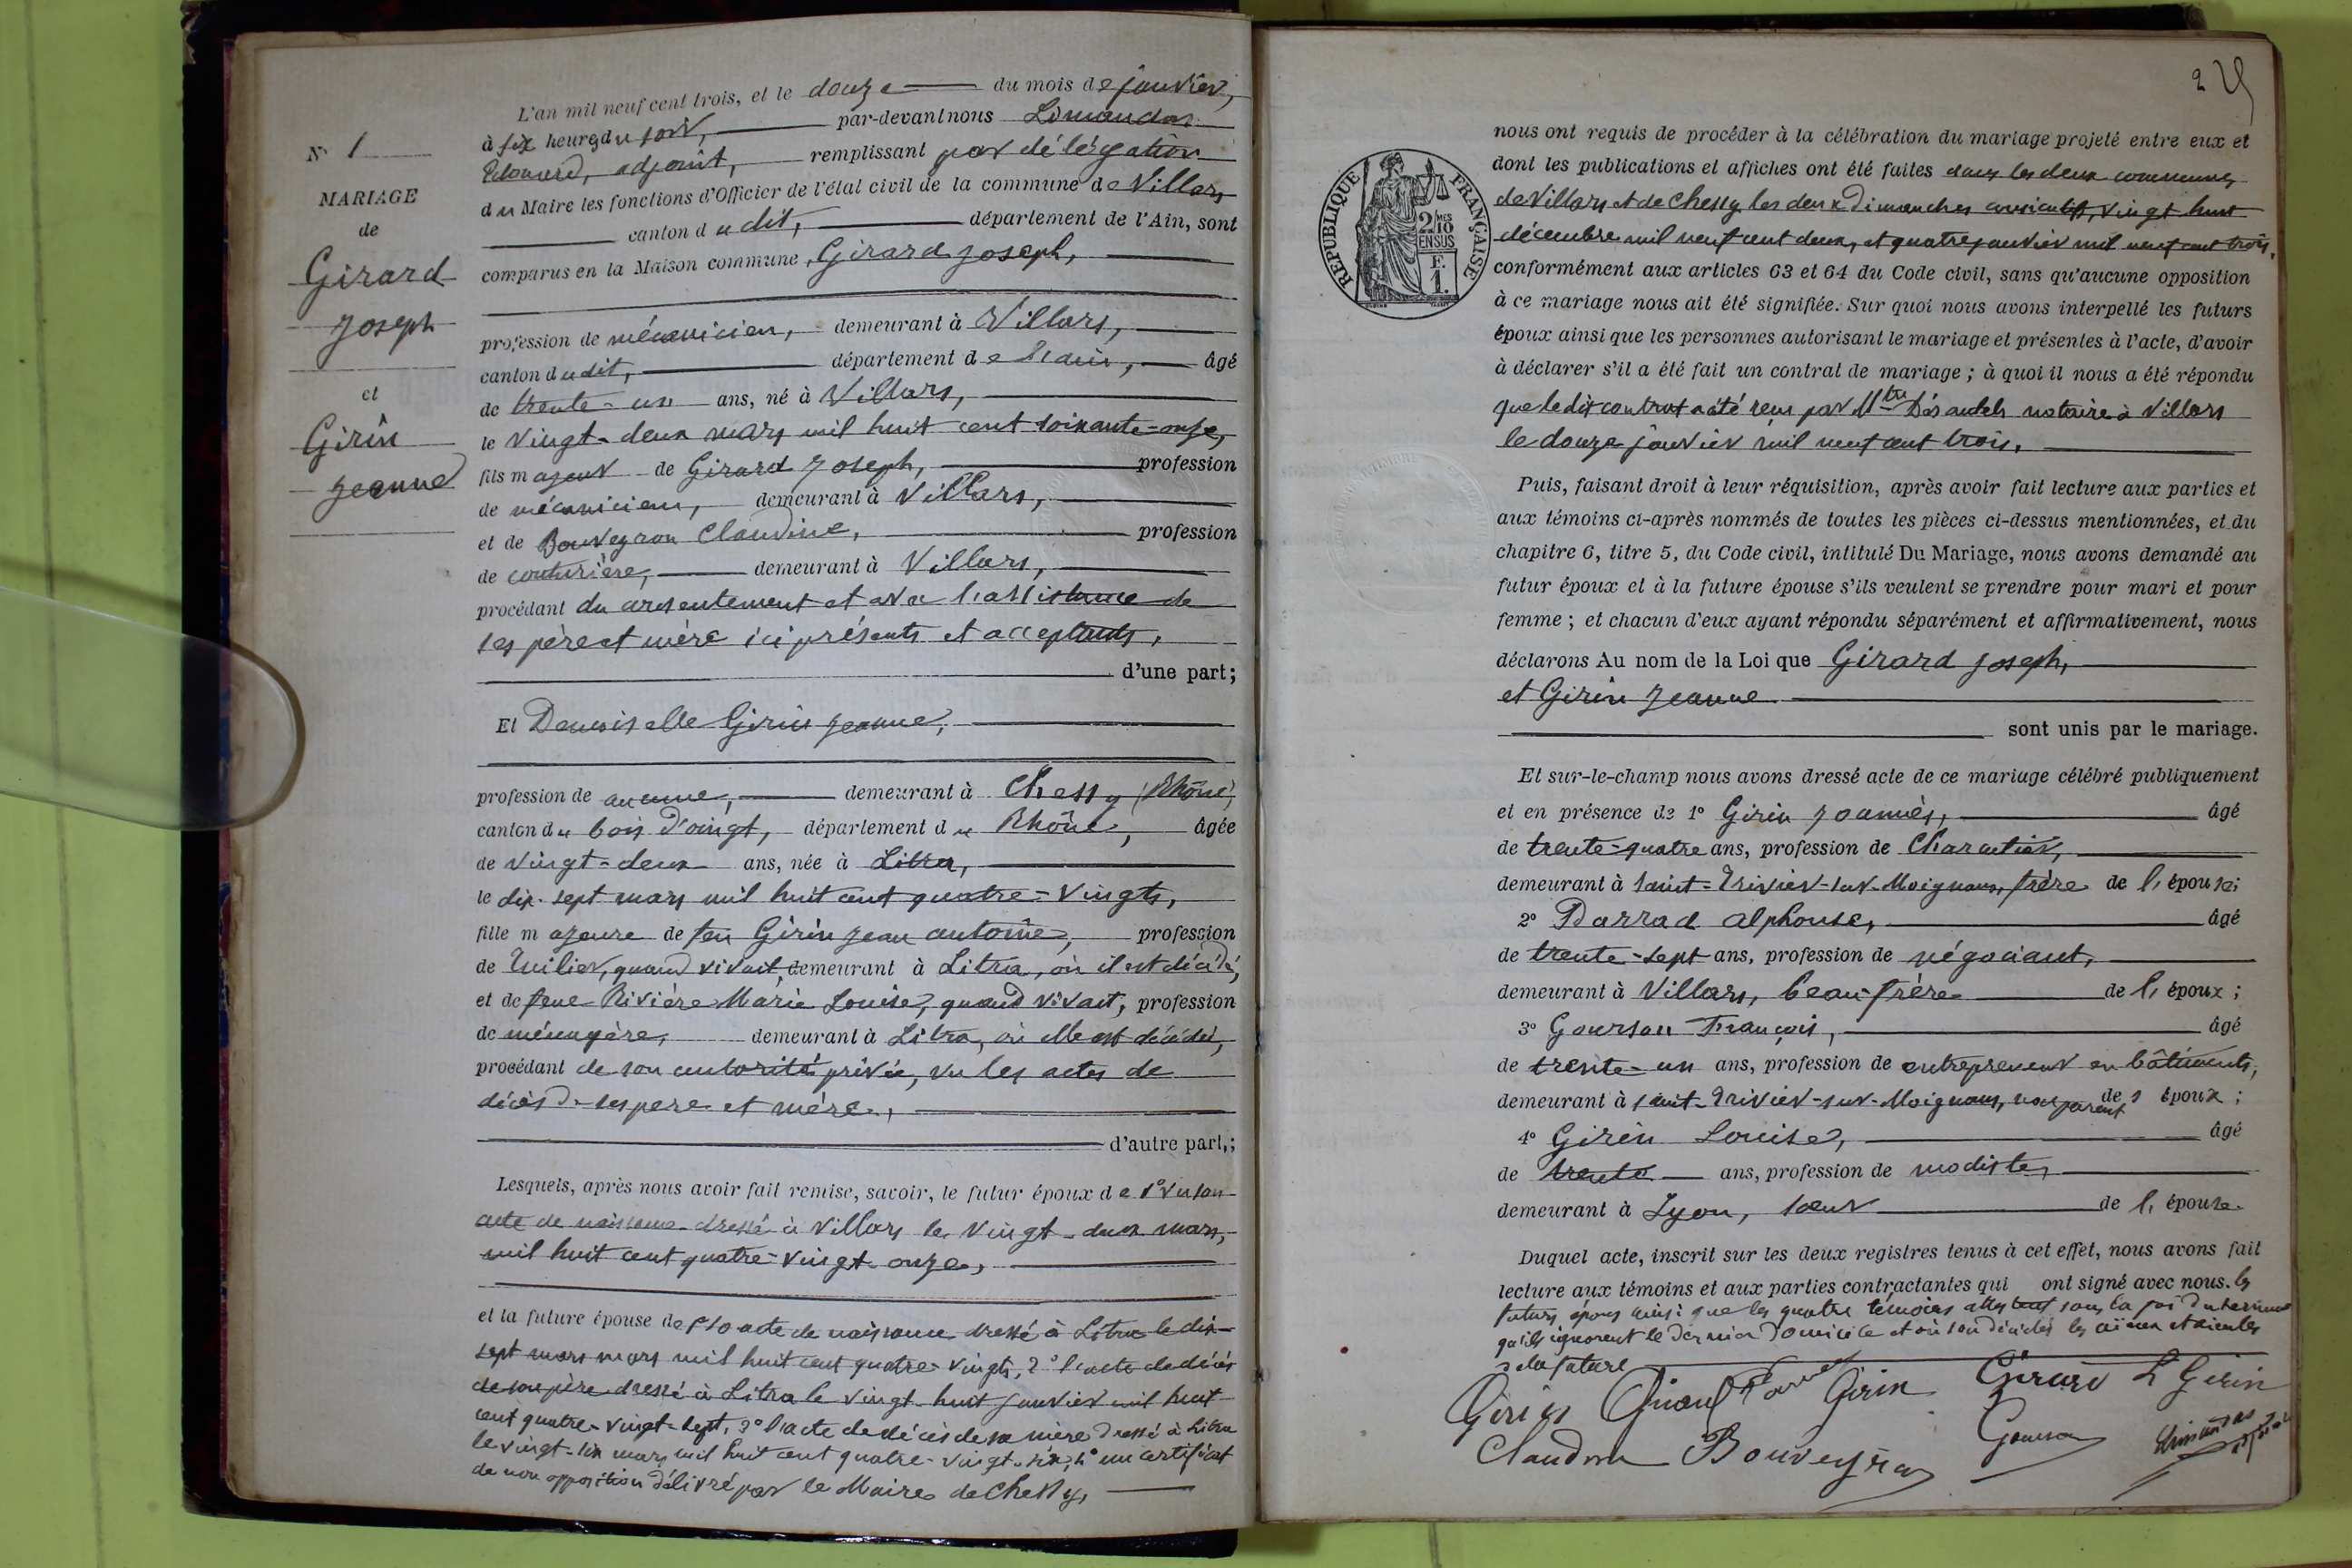 N° 1
MARIAGE
de
Girard
Joseph
et
Girin
Jeanne
L'an mil neuf cent trois, et le douze du mois de janvier,
à six heures du soir, par-devant nous Limandas
Edouard, adjoint, remplissant par délégation
du Maire les fonctions d'Officier de l'état civil de la commune de Villars
canton dudit, département de l'Ain, sont
comparus en la Maison commune, Girard Joseph,
profession de mécanicien, demeurant à Villars,
canton dudit, département de l'ain, âgé
de trente-un ans, né à Villars,
le vingt-deux mars mil huit cent soixante-onze,
fils majeur de Girard Joseph, profession
de mécanicien, demeurant à Villars,
et de Bouveyron Claudine, profession
de couturière, demeurant à Villars,
procédant du consentement et avec l'assistance de
ses père et mère ici présents et acceptants,
d'une part;
Et Demoiselle Girin Jeanne,
profession de aucune, demeurant à Chessy (Rhône)
canton du bois d'oingt, département du Rhône, âgée
de vingt-deux ans, née à Létra,
le dix-sept mars mil huit cent quatre-vingts,
fille majeure de feu Girin Jean antoine, profession
de tuilier, quand vivait, demeurant à Létra, où il est décédé,
et de feue Rivière Marie Louise, quand vivait, profession
de ménagère, demeurant à Létra, où elle est décédée,
procédant de son autorité privée, vu les actes de
décès de ses père et mère,
d'autre part,;
Lesquels, après nous avoir fait remise, savoir, le futur époux de 1° vu son
acte de naissance dressé à Villars le vingt-deux mars,
mil huit cent quatre-vingt-onze,
et la future épouse de 1° acte de naissance dressé à Létra le dix-
sept mars mars mil huit cent quatre-vingts, 2° l'acte de décès
de son père dressé à Létra le vingt-huit janvier mil huit
cent quatre-vingt-sept, 3° l'acte de décès de sa mère dressé à Létra
le vingt-six mars mil huit cent quatre-vingt-six, 4° un certificat
de non opposition délivré par le Maire de Chessy,
2
nous ont requis de procéder à la célébration du mariage projeté entre eux et
dont les publications et affiches ont été faites dans les deux communes
de Villars et de Chessy les deux dimanches consécutifs, vingt huit
décembre mil neuf cent deux, et quatre janvier mil neuf cent trois,
conformément aux articles 63 et 64 du Code civil, sans qu'aucune opposition
à ce mariage nous ait été signifiée. Sur quoi nous avons interpellé les futurs
époux ainsi que les personnes autorisant le mariage et présentes à l'acte, d'avoir
à déclarer s'il a été fait un contrat de mariage ; à quoi il nous a été répondu
que le dit contrat a été reçu par Mtre Désautels notaire à Villars
le douze janvier mil neuf cent trois.
RÉPUBLIQUE FRANÇAISE
2/10 MES
EN SUS
F.
1.
Puis, faisant droit à leur réquisition, après avoir fait lecture aux parties et
aux témoins ci-après nommés de toutes les pièces ci-dessus mentionnées, et du
chapitre 6, titre 5, du Code civil, intitulé Du Mariage, nous avons demandé au
futur époux et à la future épouse s'ils veulent se prendre pour mari et pour
femme ; et chacun d'eux ayant répondu séparément et affirmativement, nous
déclarons Au nom de la Loi que Girard Joseph,
et Girin Jeanne
sont unis par le mariage.
Et sur-le-champ nous avons dressé acte de ce mariage célébré publiquement
et en présence de 1° Girin Joannès, âgé
de trente-quatre ans, profession de Charcutier,
demeurant à Saint-Trivier-sur-Moignans, frère de l'épouse;
2° Darrad Alphonse, âgé
de trente-sept ans, profession de négociant,
demeurant à Villars, beau-frère de l'époux ;
3° Gourson François, âgé
de trente-un ans, profession de entrepreneur en bâtiments,
demeurant à Saint-Trivier-sur-Moignans, non parent des époux ;
4° Girin Louise, âgé
de trente ans, profession de modiste,
demeurant à Lyon, sœur de l'épouse.
Duquel acte, inscrit sur les deux registres tenus à cet effet, nous avons fait
lecture aux témoins et aux parties contractantes qui ont signé avec nous. les
futurs époux ainsi que les quatre témoins attestent sous la foi du serment
qu'ils ignorent le dernier domicile et où sont décédés les aïeux et aieules
de la future
Girin Girard Girin Girard L Girin
Claudine Bouveyron Gourson Limandas